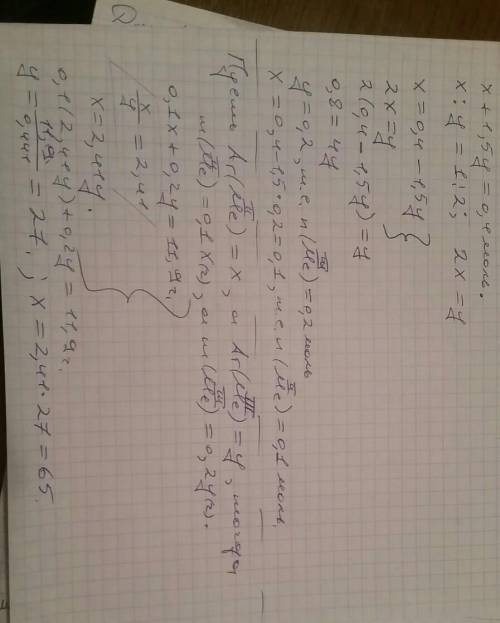 x + 1,5y = 0,4 моль.
x : y = 1 : 2; 2x = y
x = 0,4 - 1,5y
2x = y
2(0,4 - 1,5y) = y
0,8 = 4y
y = 0,2, т.е. n(Me^III) = 0,2 моль
x = 0,4 - 1,5 · 0,2 = 0,1, т.е. n(Me^II) = 0,1 моль.
Пусть Ar(Me^II) = x, а Ar(Me^III) = y, тогда
m(Me^II) = 0,1x(г), а m(Me^III) = 0,2y(г).
0,1x + 0,2y = 11,9г.
x/y = 2,41
x = 2,41y.
0,1(2,41y) + 0,2y = 11,9г.
y = 11,9/0,441 = 27. ; x = 2,41 · 27 = 65.